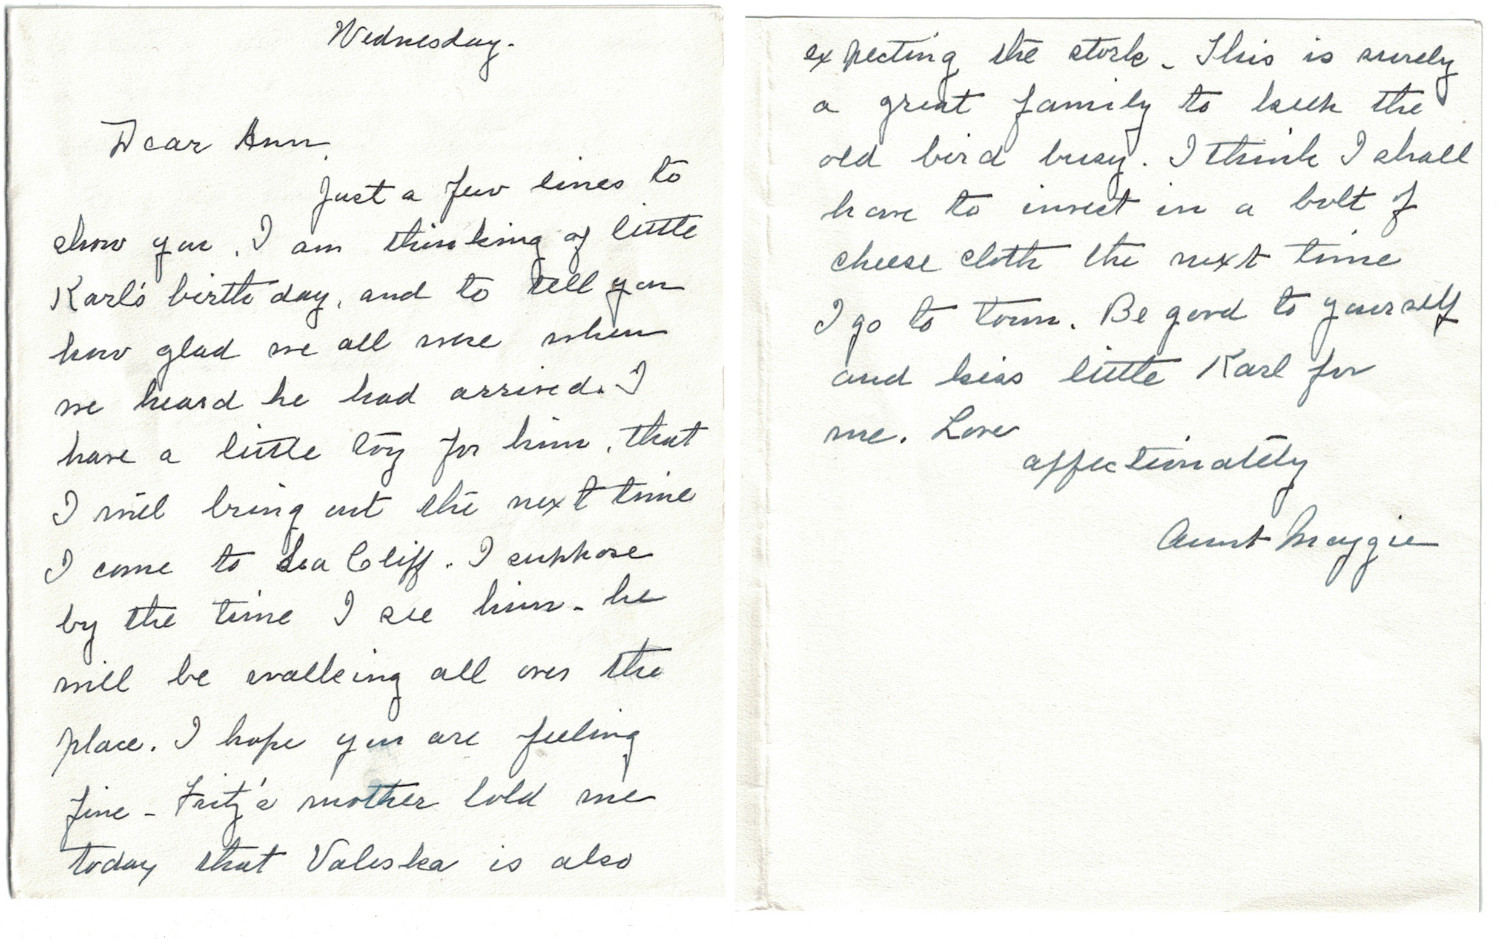 Wednesday.
Dear Ann,
Just a few lines to
show you, I am thinking of little
Karl's birthday, and to tell you
how glad we all were when
we heard he had arrived. I
have a little toy for him, that
I will bring out the next time
I come to Sea Cliff. I suppose
by the time I see him - he
will be walking all over the
place. I hope you are feeling
fine - Fritz's mother told me
today that Valeska is also
expecting the stork - This is surely
a great family to keep the
old bird busy. I think I shall
have to invest in a bolt of
cheese cloth the next time
I go to town. Be good to yourself
and kiss little Karl for
me. Love
affectionately
Aunt Maggie